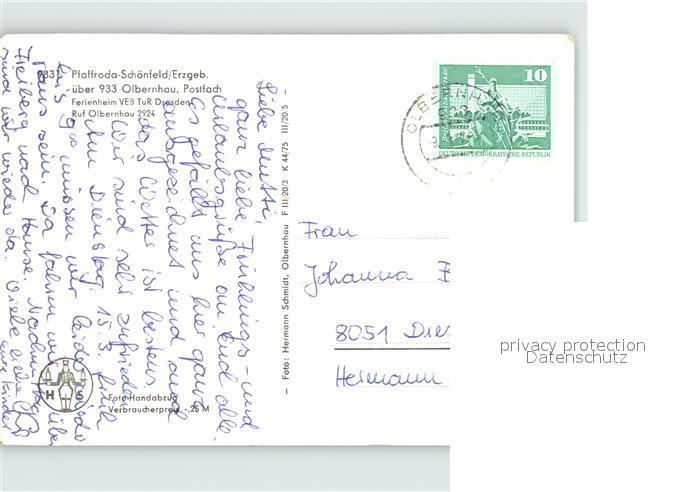 9331 Pfaffroda-Schönfeld/Erzgeb.
über 933 Olbernhau, Postfach
Ferienheim VEB TuR Dresden
Ruf Olbernhau 2924
Liebe Mutti,
ganz liebe Frühlings- und
Urlaubsgrüße an Euch alle.
Es gefällt uns hier ganz
ausgezeichnet und auch
das Wetter ist bestens.
Wir sind sehr zufrieden.
Am Dienstag, 15.3. früh
müssen wir leider
raus sein. Da fahren wir über
Freiberg nach Hause. Nachmittag
sind wir wieder da. Viele liebe
Eure Kinder
– Foto: Hermann Schmidt, Olbernhau F III/20/3 K 44/75 III/20/5 –
H S
Foto-Handabzug
Verbraucherpreis -,25 M
10
DEUTSCHE DEMOKRATISCHE REPUBLIK
OLBERNHAU
Frau
Johanna
8051 Dres
Hermann
privacy protection
Datenschutz